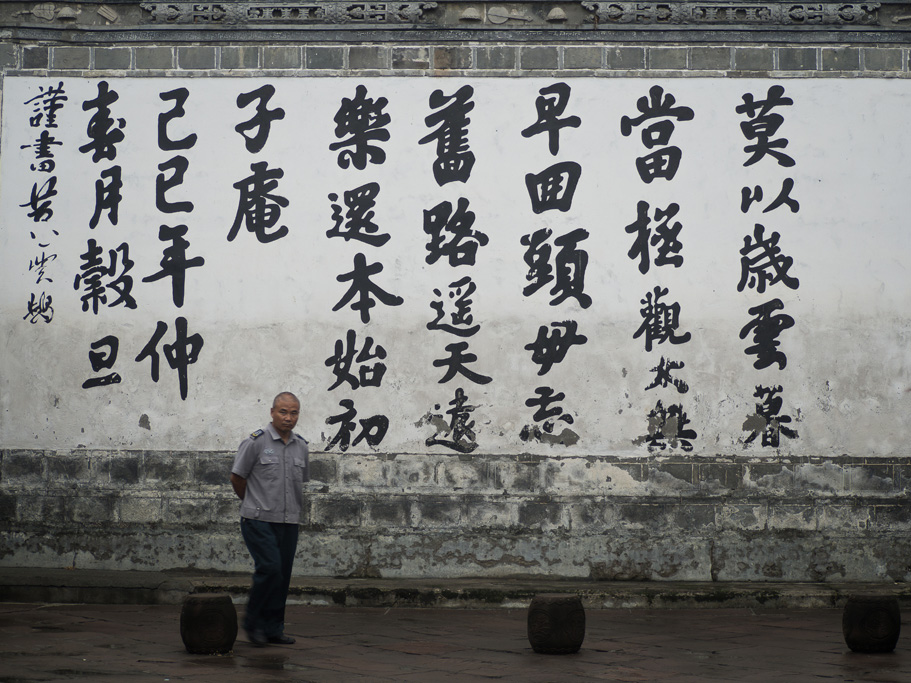 莫以歲雲暮
當極觀太
早囬頭毋忘
舊路遙天遠
樂還本始初
子庵
己巳年仲
春月穀旦
謹書